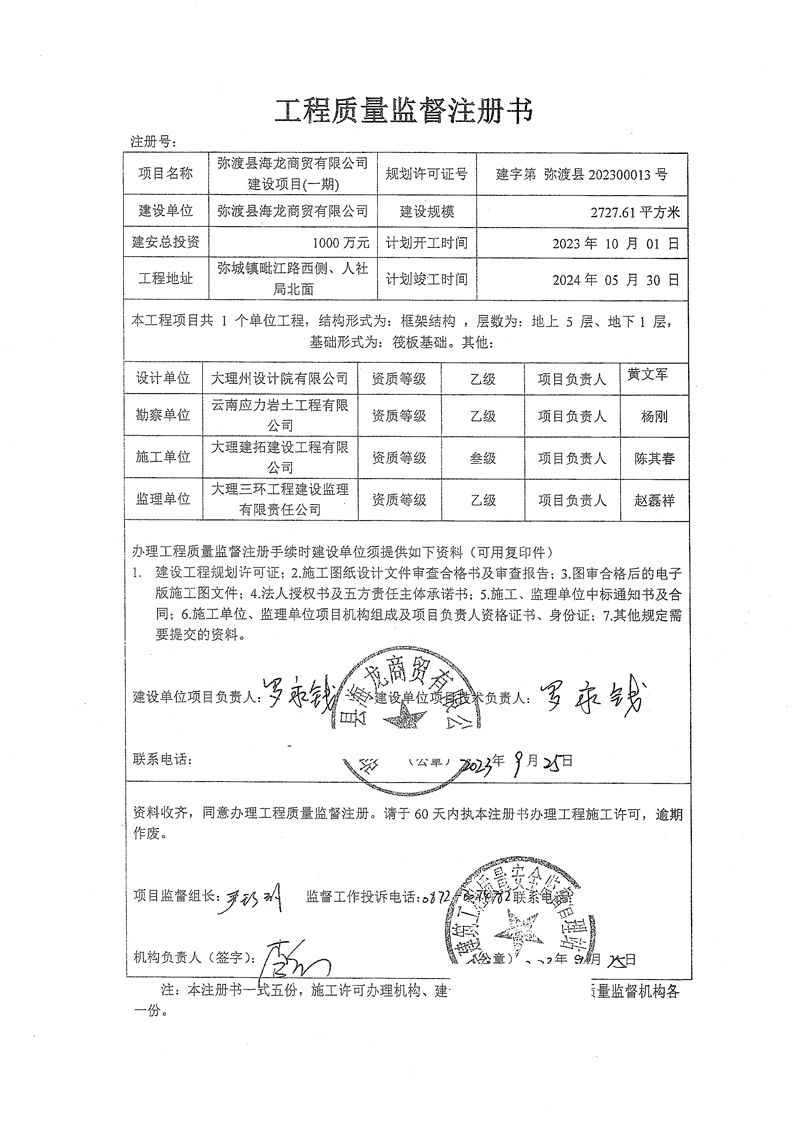 工程质量监督注册书
注册号：
项目名称 弥渡县海龙商贸有限公司建设项目(一期) 规划许可证号 建字第 弥渡县 202300013 号
建设单位 弥渡县海龙商贸有限公司 建设规模 2727.61 平方米
建安总投资 1000 万元 计划开工时间 2023 年 10 月 01 日
工程地址 弥城镇毗江路西侧、人社局北面 计划竣工时间 2024 年 05 月 30 日
本工程项目共 1 个单位工程，结构形式为：框架结构 ，层数为：地上 5 层、地下 1 层，
基础形式为：筏板基础。其他：
设计单位 大理州设计院有限公司 资质等级 乙级 项目负责人 黄文军
勘察单位 云南应力岩土工程有限公司 资质等级 乙级 项目负责人 杨刚
施工单位 大理建拓建设工程有限公司 资质等级 叁级 项目负责人 陈其春
监理单位 大理三环工程建设监理有限责任公司 资质等级 乙级 项目负责人 赵磊祥
办理工程质量监督注册手续时建设单位须提供如下资料（可用复印件）
1. 建设工程规划许可证；2.施工图纸设计文件审查合格书及审查报告；3.图审合格后的电子
版施工图文件；4.法人授权书及五方责任主体承诺书；5.施工、监理单位中标通知书及合
同；6.施工单位、监理单位项目机构组成及项目负责人资格证书、身份证；7.其他规定需
要提交的资料。
县海龙商贸有限公
建设单位项目负责人： 建设单位项目技术负责人：
联系电话： （公章） 2023年 9月 25日
资料收齐，同意办理工程质量监督注册。请于 60 天内执本注册书办理工程施工许可，逾期
作废。
建筑工程质量安全监督管理站
项目监督组长： 监督工作投诉电话：0872- 联系电话
机构负责人（签字）： （公章） 年 9月 25日
注：本注册书一式五份，施工许可办理机构、建 质量监督机构各
一份。